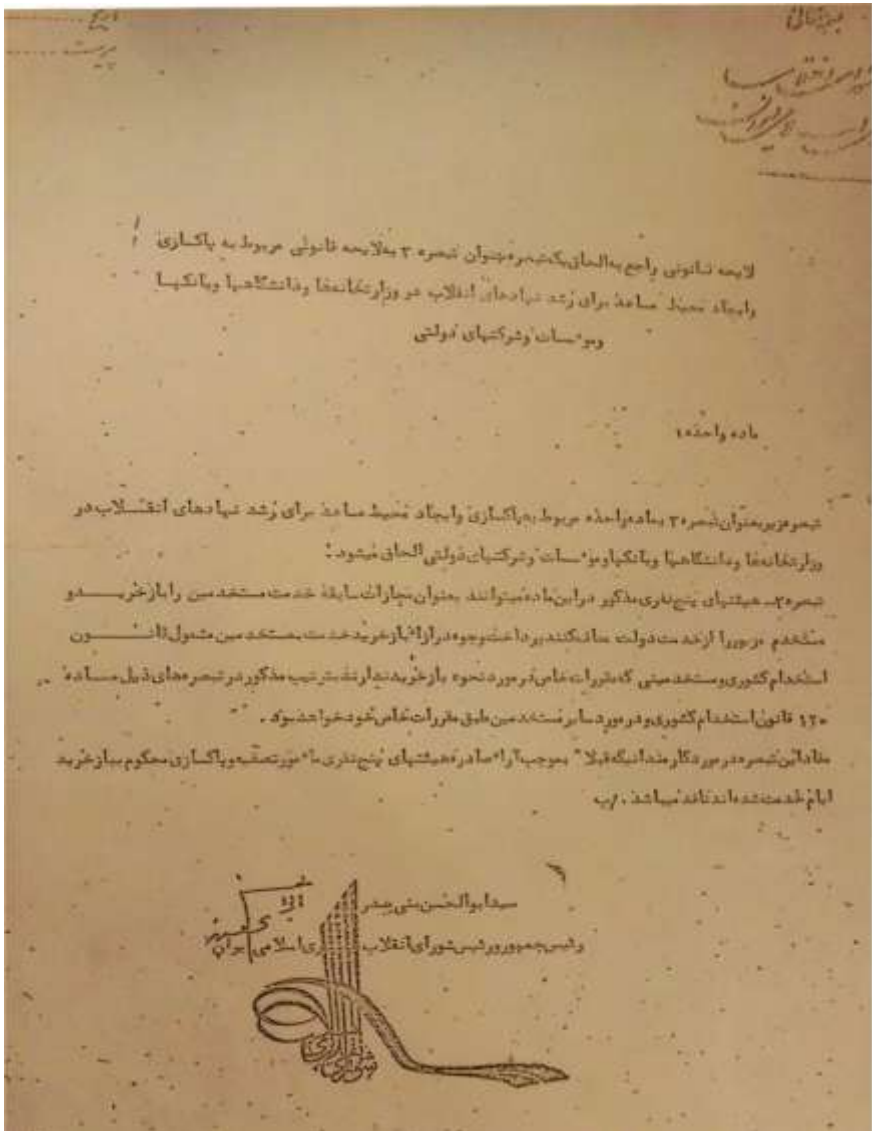 بسمه‌تعالی
تاریخ
پیوست
شورای انقلاب
لایحه قانونی راجع به الحاق یک تبصره بعنوان تبصره ۳ به لایحه قانونی مربوط به پاکسازی
وایجاد محیط مساعد برای رشد نهادهای انقلاب در وزارتخانه‌ها ودانشگاهها وبانکها
وموٴسسات وشرکتهای دولتی
ماده واحده:
تبصره زیر بعنوان تبصره ۳ بماده واحده مربوط به پاکسازی وایجاد محیط مساعد برای رشد نهادهای انقلاب در
وزارتخانه‌ها ودانشگاهها وبانکها وموٴسسات وشرکتهای دولتی الحاق میشود:
تبصره ۳ـ هیئتهای پنج نفری مذکور در این ماده میتوانند بعنوان مجازات سابقه خدمت مستخدمین را بازخرید و
مستخدم مزبور را از خدمت دولت معاف کنند پرداخت وجوه در ازاٴ بازخرید خدمت بمستخدمین مشمول قانون
استخدام کشوری ومستخدمینی که مقررات خاص در مورد نحوه بازخرید ندارند بترتیب مذکور در تبصره‌های ذیل ماده
۱۲۰ قانون استخدام کشوری ودر مورد سایر مستخدمین طبق مقررات خاص خود خواهد بود.
مفاد این تبصره در مورد کارمندانیکه قبلا" بموجب آراٴ صادره هیئتهای پنج نفری ماٴمور تصفیه وپاکسازی محکوم ببازخرید
ایام خدمت شده‌اند نافذ میباشد. /ب
سید ابوالحسن بنی صدر
رئیس جمهور ورئیس شورای انقلاب اسلامی ایران